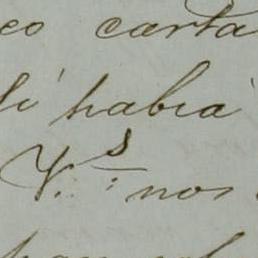 eo carta
li habia
V.s nos